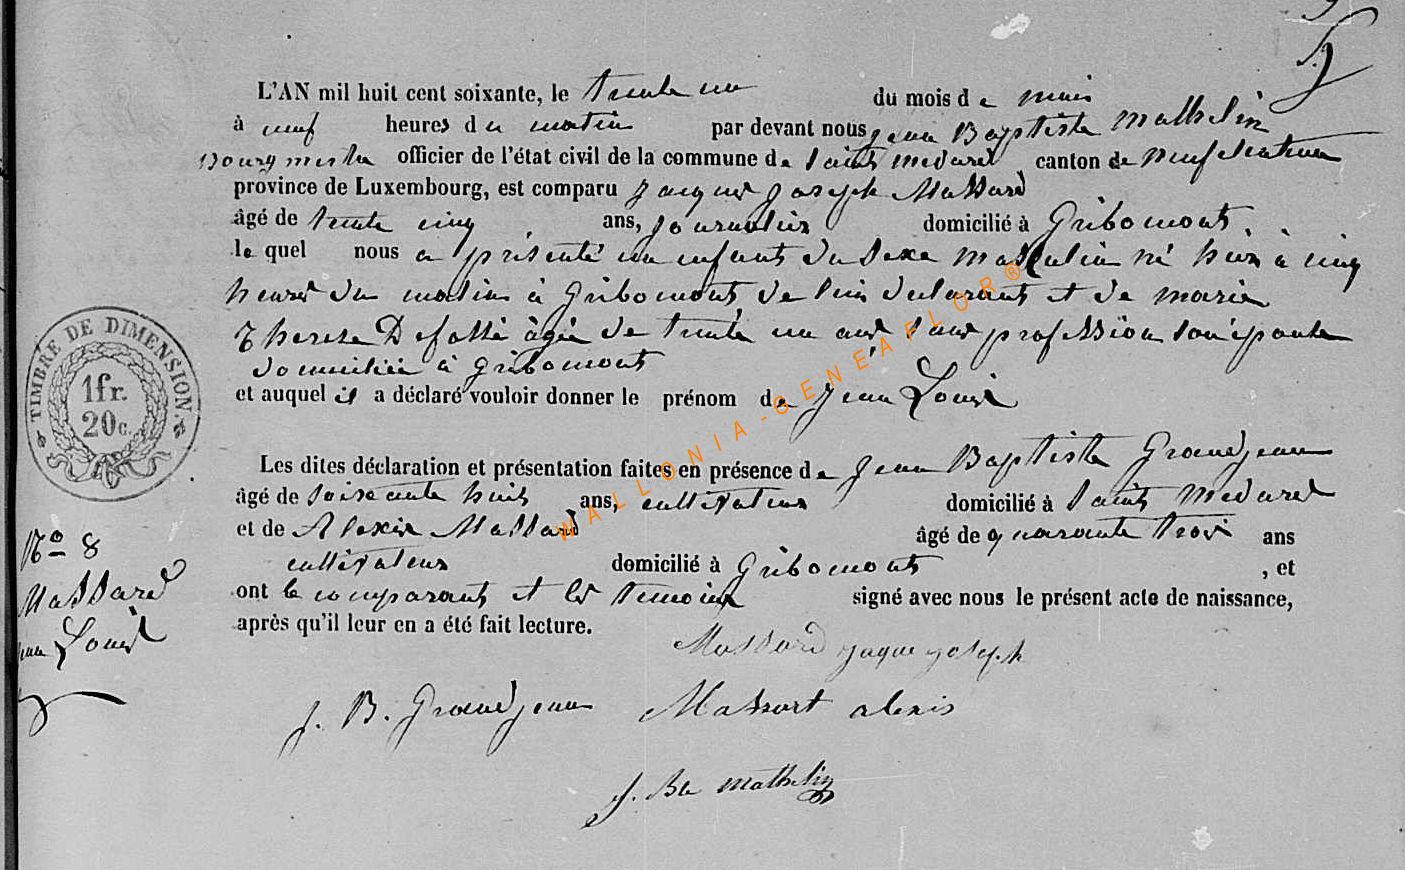 L'AN mil huit cent soixante, le trente un du mois de mais
à neuf heures du matin par devant nous jean Baptiste Mathelin
Bourgmestre officier de l'état civil de la commune de Saint Medard canton de Neufchateau
province de Luxembourg, est comparu jacques joseph Massard
âgé de trente cinq ans, journalier domicilié à Gribomont
lequel nous a présenté un enfant du sexe masculin né hier à cinq
heures du matin à Gribomont de lui declarant et de marie
Therese Defossé âgée de trente un ans sans profession son épouse
domiciliée à gribomont
et auquel il a déclaré vouloir donner le prénom de jean Louis
Les dites déclaration et présentation faites en présence de jean Baptiste Grandjean
âgé de soixante huit ans, cultivateur domicilié à Saint Medard
et de Alexis Massard âgé de quarante trois ans
cultivateur domicilié à Gribomont , et
ont le comparant et les temoins signé avec nous le présent acte de naissance,
après qu'il leur en a été fait lecture.
Massard jaque joseph
J. B. Grandjean Massart alexis
J. Bte Mathelin
TIMBRE DE DIMENSION.
1fr.
20c.
No 8
Massard
jean Louis
WALLONIA-GENEAFLOR®